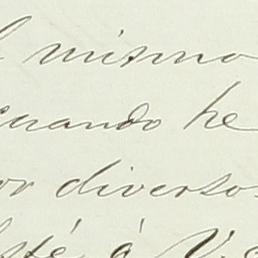 l mismo
cuando he
or diversos
esté á V.